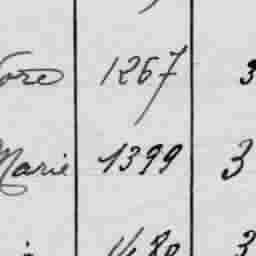 1267 3
Marie 1399 3
1480 3